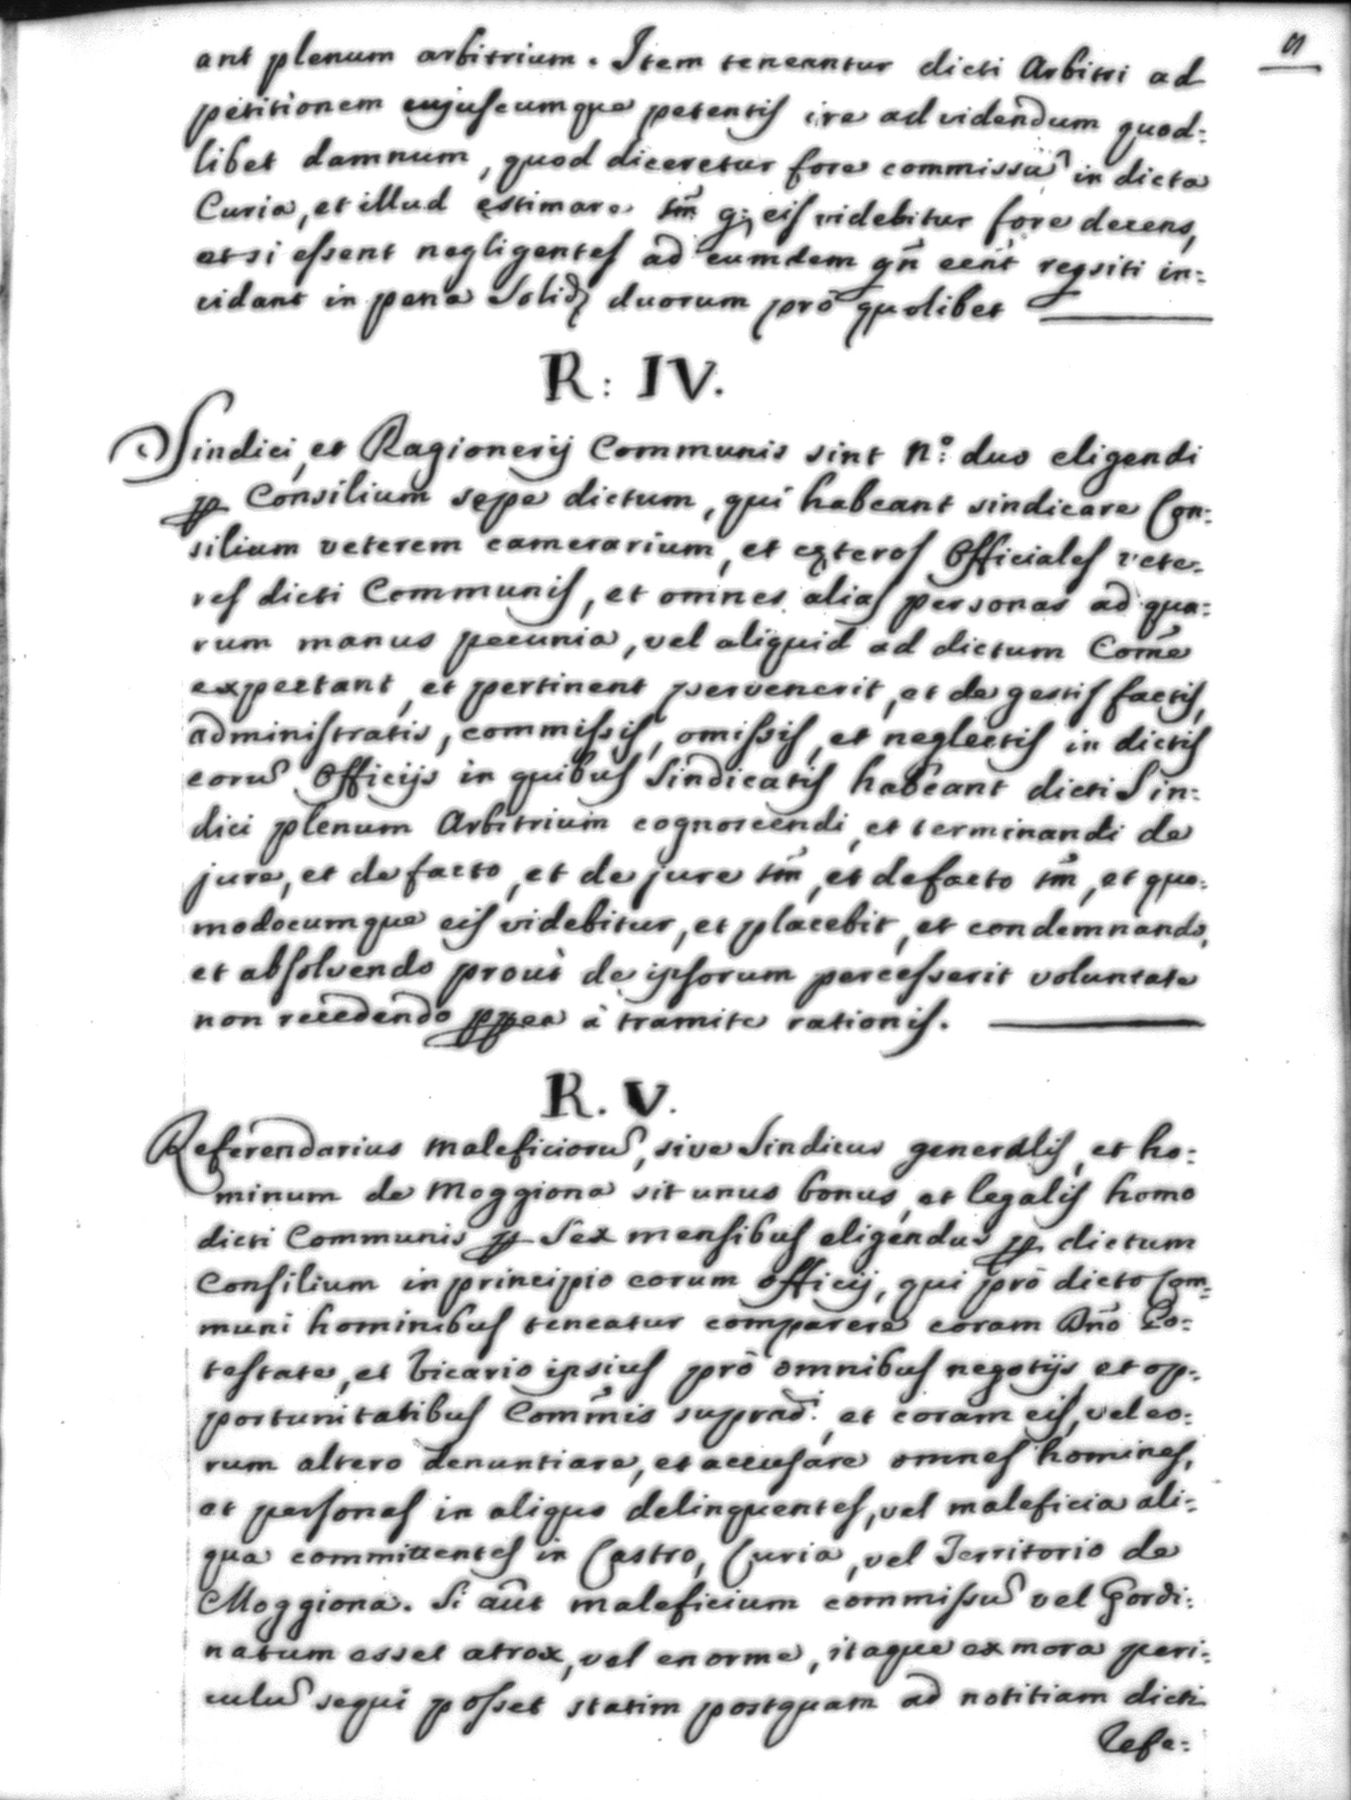 ant plenum arbitrium. Item teneantur dicti Arbitri ad
petitionem cujuscumque petentis ire ad videndum quod:
libet damnum, quod diceretur fore commissũ in dicta
Curia, et illud ęstimare tm̃ q; eis videbitur fore decens,
et si essent negligentes ad eumdem qñ eẽnt reqsiti in:
cidant in pena Solid; duorum prò quolibet
R: IV.
Sindici, et Ragionerij Communis sint N.º duo eligendi
ꝑ Consilium sępe dictum, qui habeant sindicare Con:
silium veterem camerarium, et exteros Officiales vete:
res dicti Communis, et omnes alias personas ad qua:
rum manus pecunia, vel aliquid ad dictum Comẽ
expectant, et pertinent pervenerit, et de gestis factis,
administratis, commissis, omissis, et neglectis in dictis
eorũ Officijs in quibus Sindicatis habeant dicti Sin:
dici plenum Arbitrium cognoscendi, et terminandi de
jure, et de facto, et de jure tm̃, et defacto tm̃, et quo:
modocumque eis videbitur, et placebit, et condemnando,
et absolvendo proùt de ipsorum percesserit voluntate
non recedendo ꝑꝑea à tramite rationis.
R. V.
Referendarius maleficiorũ, sive Sindicus generalis, et ho:
minum de Moggiona sit unus bonus, et legalis homo
dicti Communis ꝑ Sex mensibus eligendus ꝑ dictum
Consilium in principio eorum officij, qui prò dicto Com:
muni hominibus teneatur comparere coram Dño Po:
testate, et Vicario ipsius prò omnibus negotijs et op:
portunitatibus Comm̃is suprad:, et coram eis, vel eo:
rum altero denuntiare, et accusare omnes homines,
et personas in aliquo delinquentes, vel maleficia ali:
qua committentes in Castro, Curia, vel Territorio de
Moggiona. Si aũt maleficium commissũ vel Pordi:
natum esset atrox, vel enorme, itaque ex mora peri:
culũ sequi posset statim postquam ad notitiam dicti
Refe: